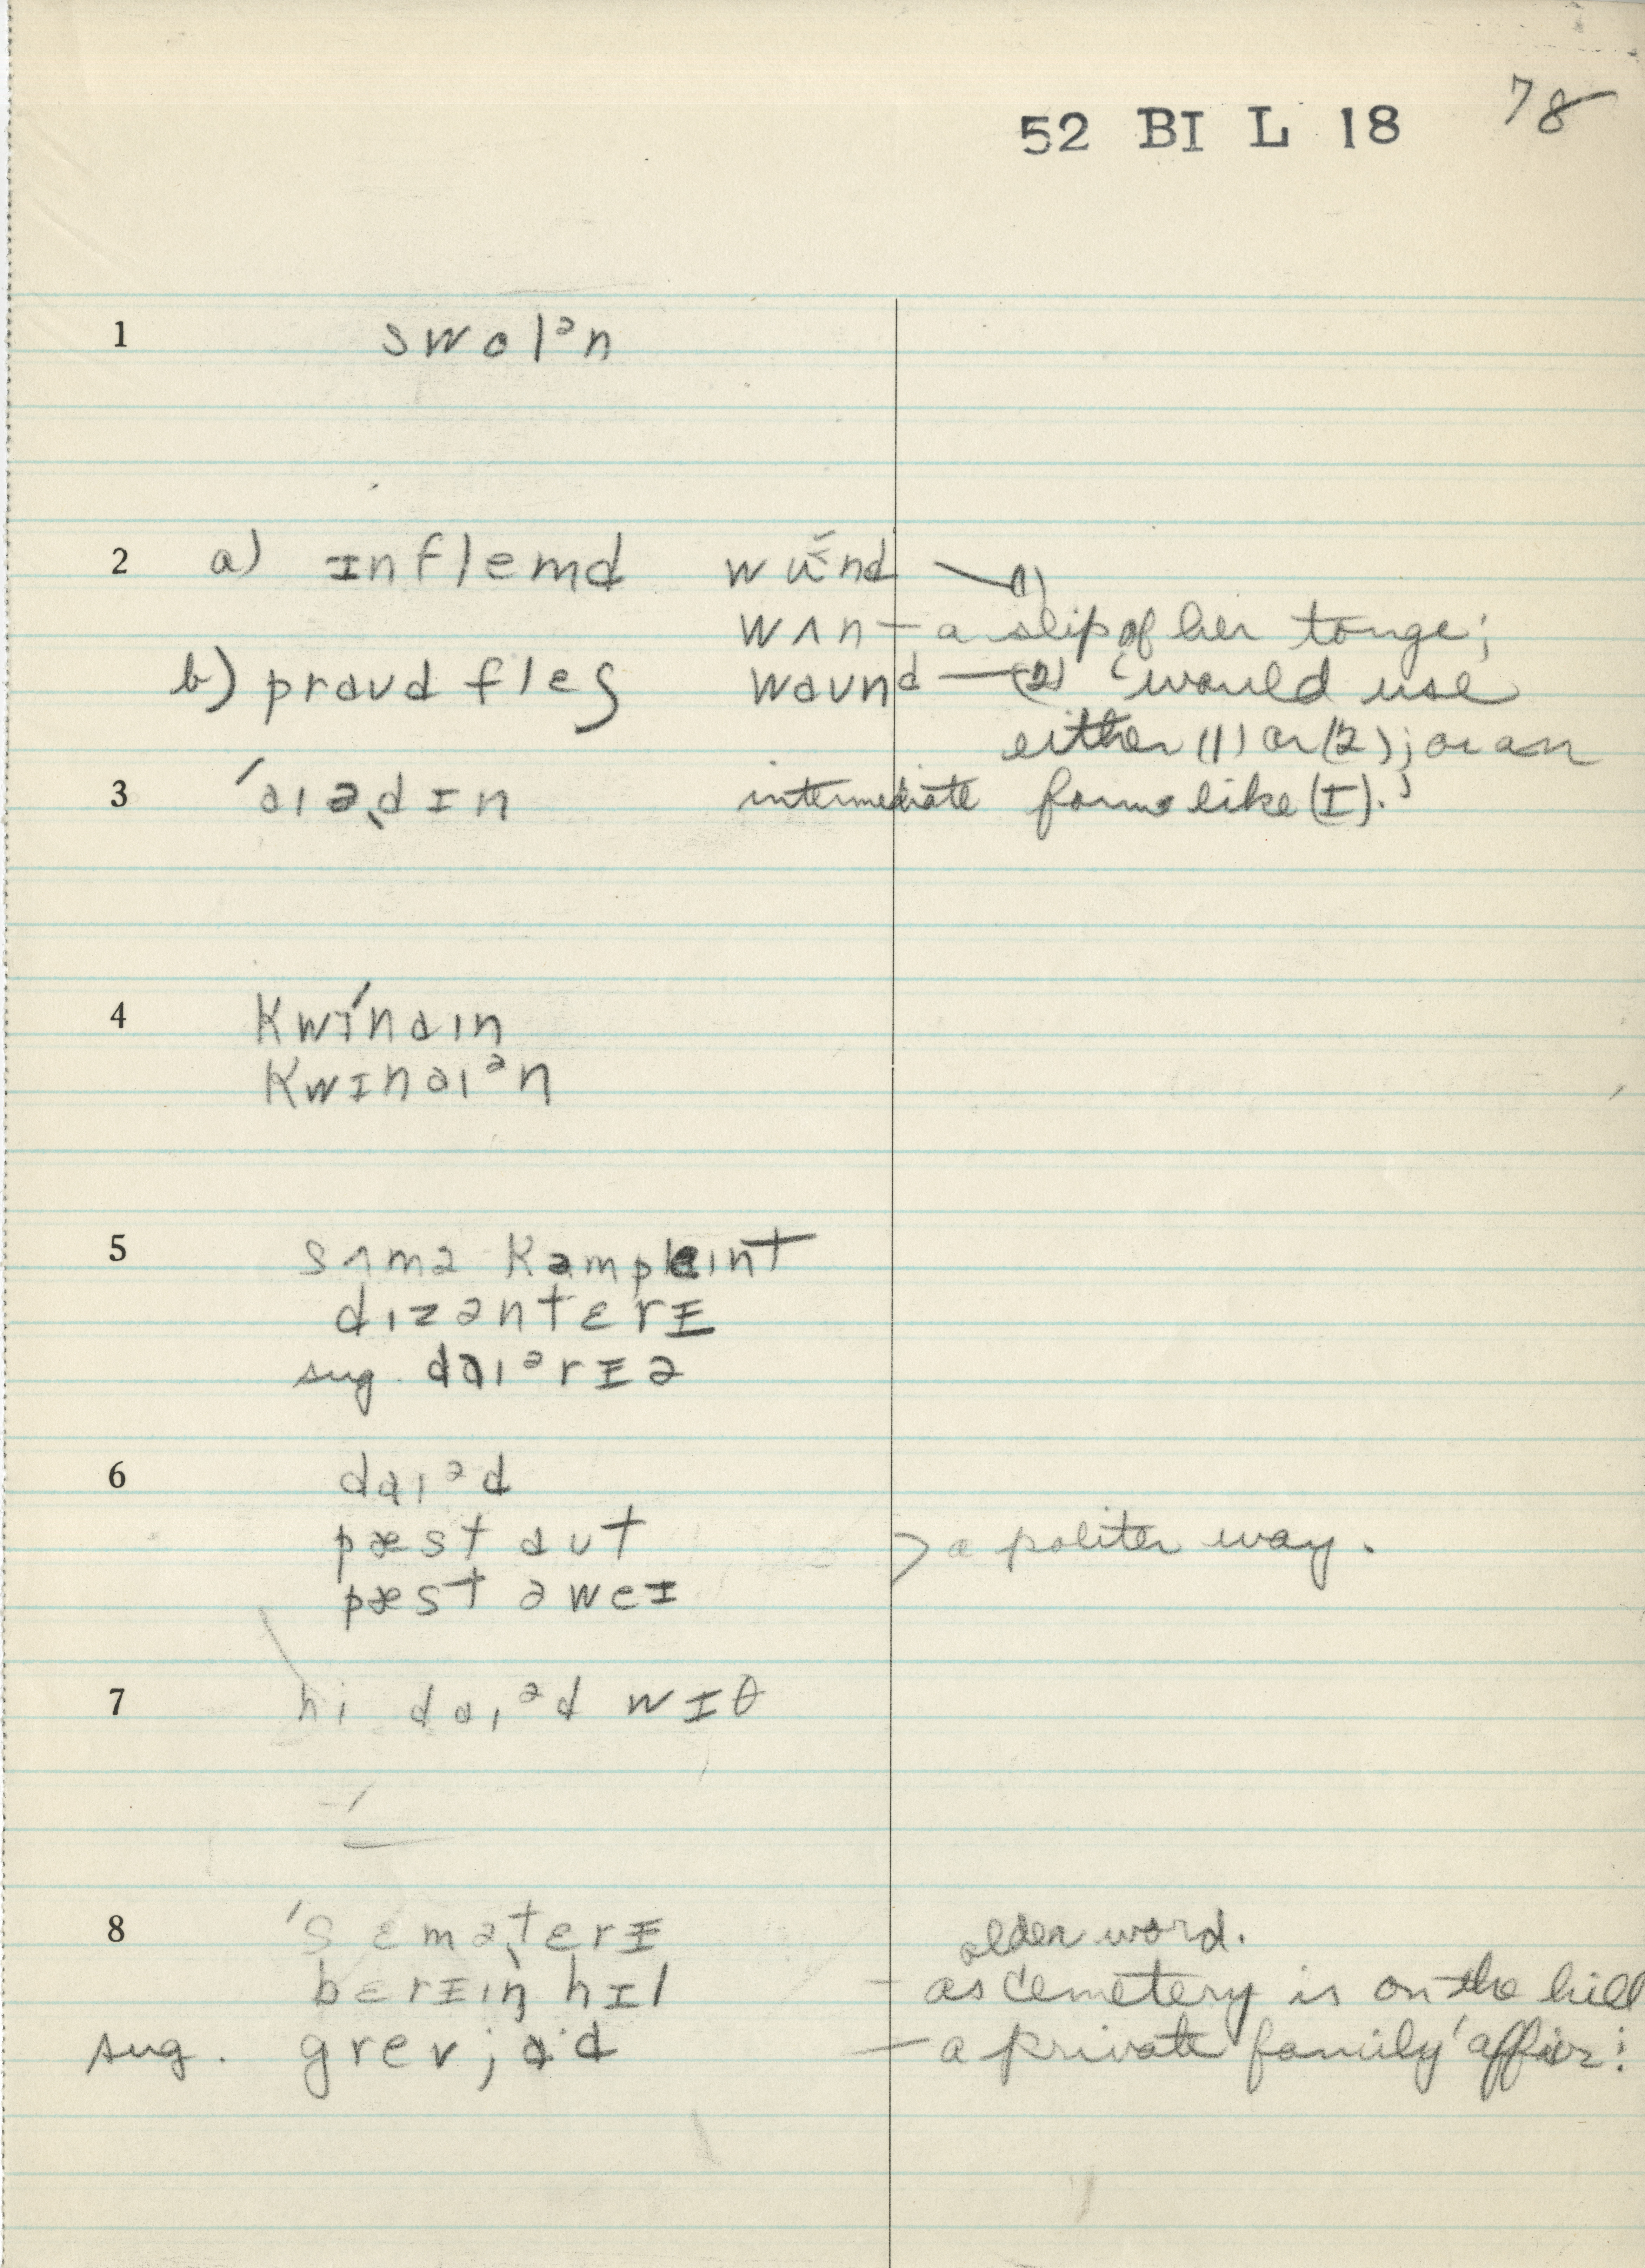 52 BI L 18 78
1 swolᵊn
2 a) ɪnflemd wʉ̆nd — (1)
wʌn — a slip of her tonge;
b) praud fleʃ waund — (2) 'would use
either (1) or (2); or an
3 ˈaɪəˌdɪn intermediate form like (I).'
4 kwɪ́naɪn
kwɪnaɪᵊn
5 sʌmə kəmpleɪnt
dɪzəntɛrɪ
sug. daɪᵊrɪə
6 daɪᵊd
pæst aut
pæst əweɪ > a politer way.
7 hi daɪᵊd wɪθ
8 ˈsɛməˌtɛrɪ older word.
bɛrɪɪŋ hɪl — as cemetery is on the hill
sug. grev jɑ·d — a private family affair: